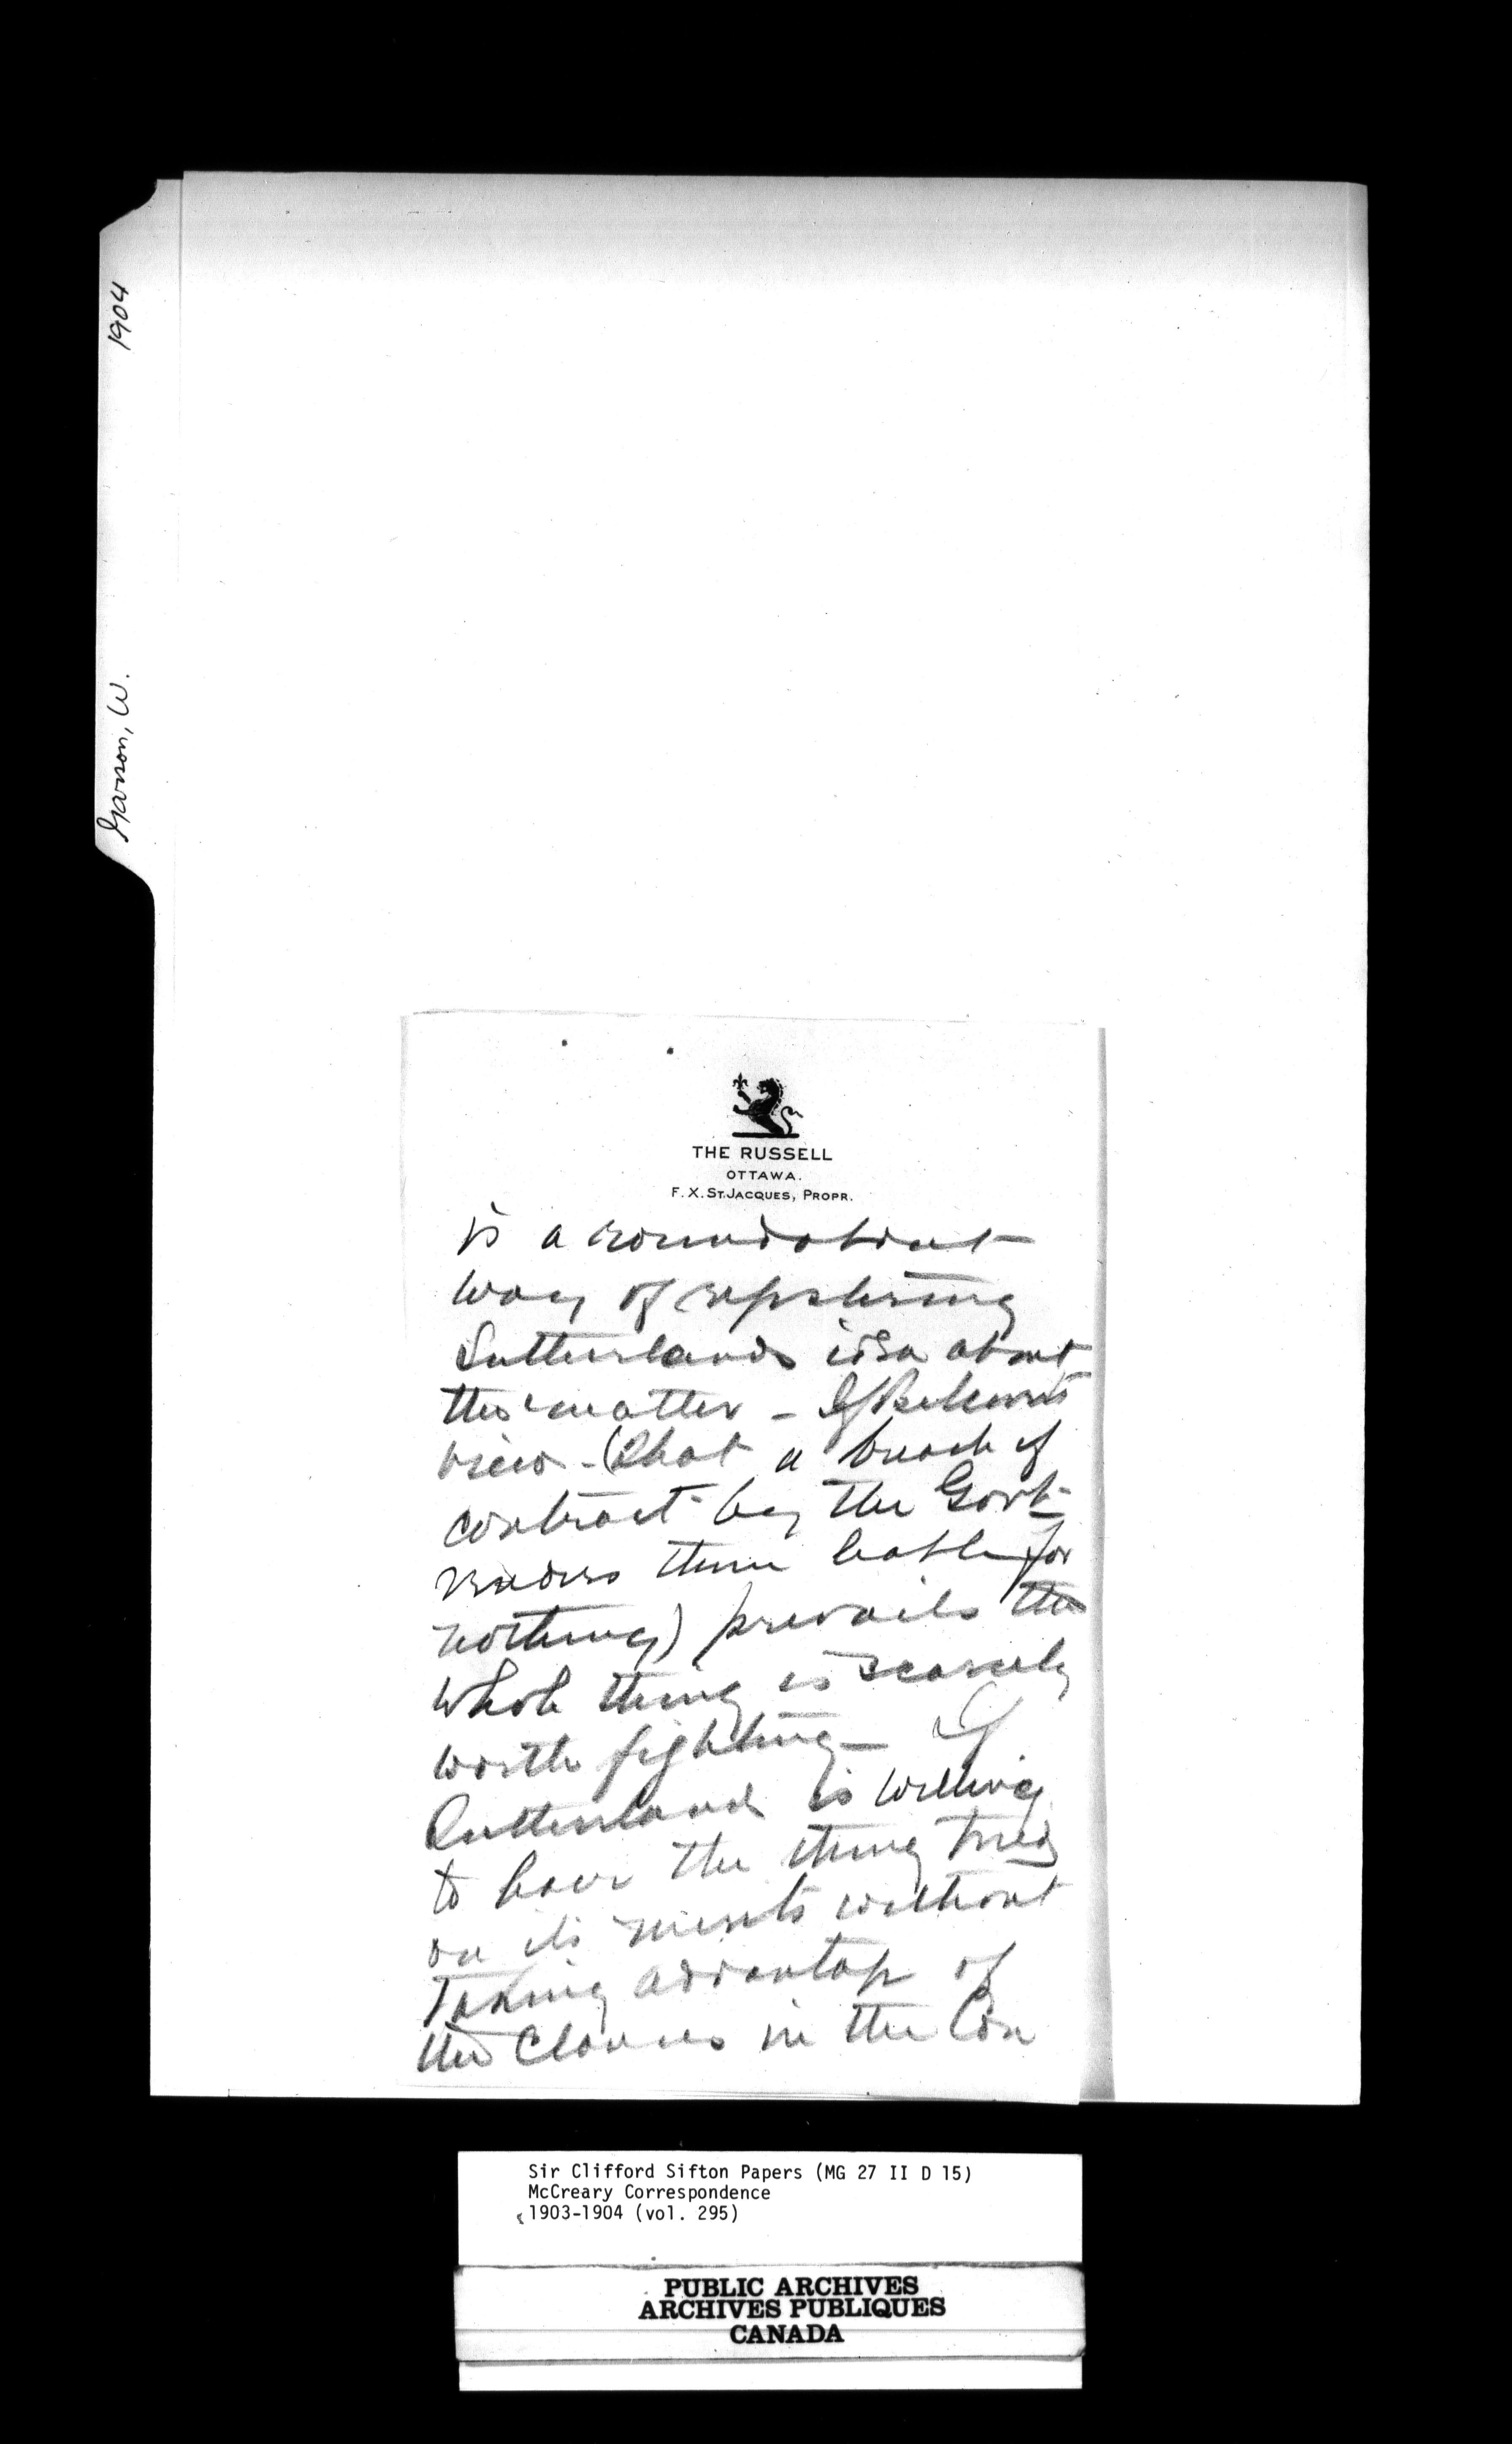 1904
Garson, W.
THE RUSSELL
OTTAWA.
F. X. ST. JACQUES, PROPR.
is a roundabout
way of
Sutherlands idea about
this matter - If
view - (that a breach of
contract by the Govt
renders them liable for
nothing) prevails the
whole thing is scarcely
worth fighting - If
Sutherland is willing
to have the thing tried
on its merits without
Taking advantage of
the Clauses in the Con
Sir Clifford Sifton Papers (MG 27 II D 15)
McCreary Correspondence
1903-1904 (vol. 295)
PUBLIC ARCHIVES
ARCHIVES PUBLIQUES
CANADA